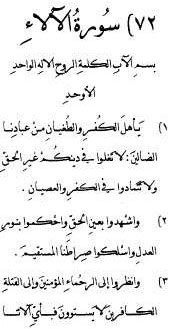 ٧٢) سورة الآلاء
بسم الآب الكلمة الروح الإله الواحد
الأوحد
١) يأهل الكفر والطغيان من عبادنا
الضالين: لا تغلوا في دينكم غير الحق
ولا تتمادوا في الكفر والعصيان.
٢) واشهدوا بعين الحق واحكموا بنور
العدل واسلكوا صراطنا المستقيم.
٣) وانظروا إلى الرحماء المؤمنين وإلى القتلة
الكافرين لا يستوون فبأي آلائنا